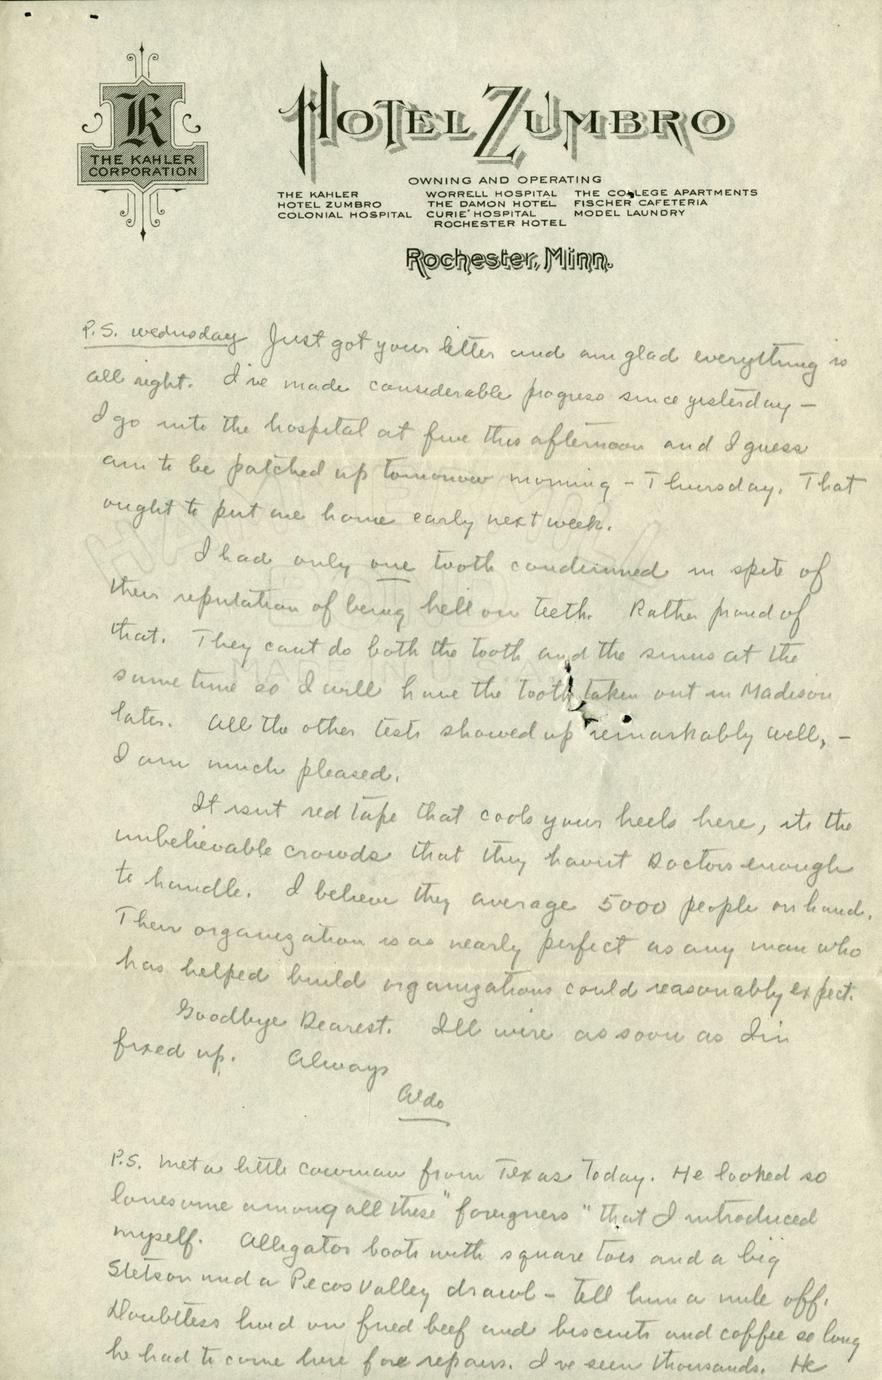 K
THE KAHLER
CORPORATION
HOTEL ZUMBRO
OWNING AND OPERATING
THE KAHLER WORRELL HOSPITAL THE COLLEGE APARTMENTS
HOTEL ZUMBRO THE DAMON HOTEL FISCHER CAFETERIA
COLONIAL HOSPITAL CURIE HOSPITAL MODEL LAUNDRY
ROCHESTER HOTEL
Rochester, Minn.
P.S. wednesday Just got your letter and am glad everything is
all right. I've made considerable progress since yesterday –
I go into the hospital at five this afternoon and I guess
am to be patched up tomorrow morning – Thursday. That
ought to put me home early next week.
I had only one tooth condemned in spite of
their reputation of being hell on teeth. Rather proud of
that. They cant do both the tooth and the sinus at the
same time so I will have the tooth taken out in Madison
later. All the other tests showed up remarkably well, –
I am much pleased.
It isnt red tape that cools your heels here, its the
unbelievable crowds that they havnt Doctors enough
to handle. I believe they average 5000 people on hand.
Their organization is as nearly perfect as any man who
has helped build organizations could reasonably expect.
Goodbye Dearest. Ill wire as soon as Im
fixed up. Always
Aldo
P.S. Met a little cowman from Texas Today. He looked so
lonesome among all these "foreigners" that I introduced
myself. Alligator boots with square toes and a big
Stetson and a Pecos Valley drawl – tell him a mile off.
Doubtless lived on fried beef and biscuits and coffee so long
he had to come here for repairs. I've seen thousands. He